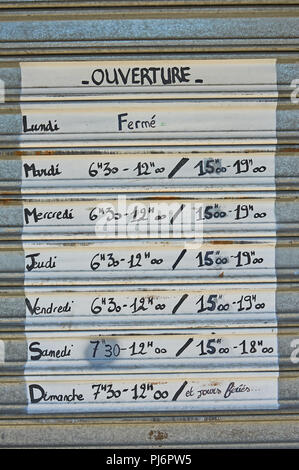 - OUVERTURE -
Lundi Fermé
Mardi 6H30 - 12H00 / 15H00 - 19H00
Mercredi 6H30 - 12H00 / 15H00 - 19H00
Jeudi 6H30 - 12H00 / 15H00 - 19H00
Vendredi 6H30 - 12H00 / 15H00 - 19H00
Samedi 7H30 - 12H00 / 15H00 - 18H00
Dimanche 7H30 - 12H00 / et jours fériés...
alamy
Image ID: PJ6PW5
www.alamy.com